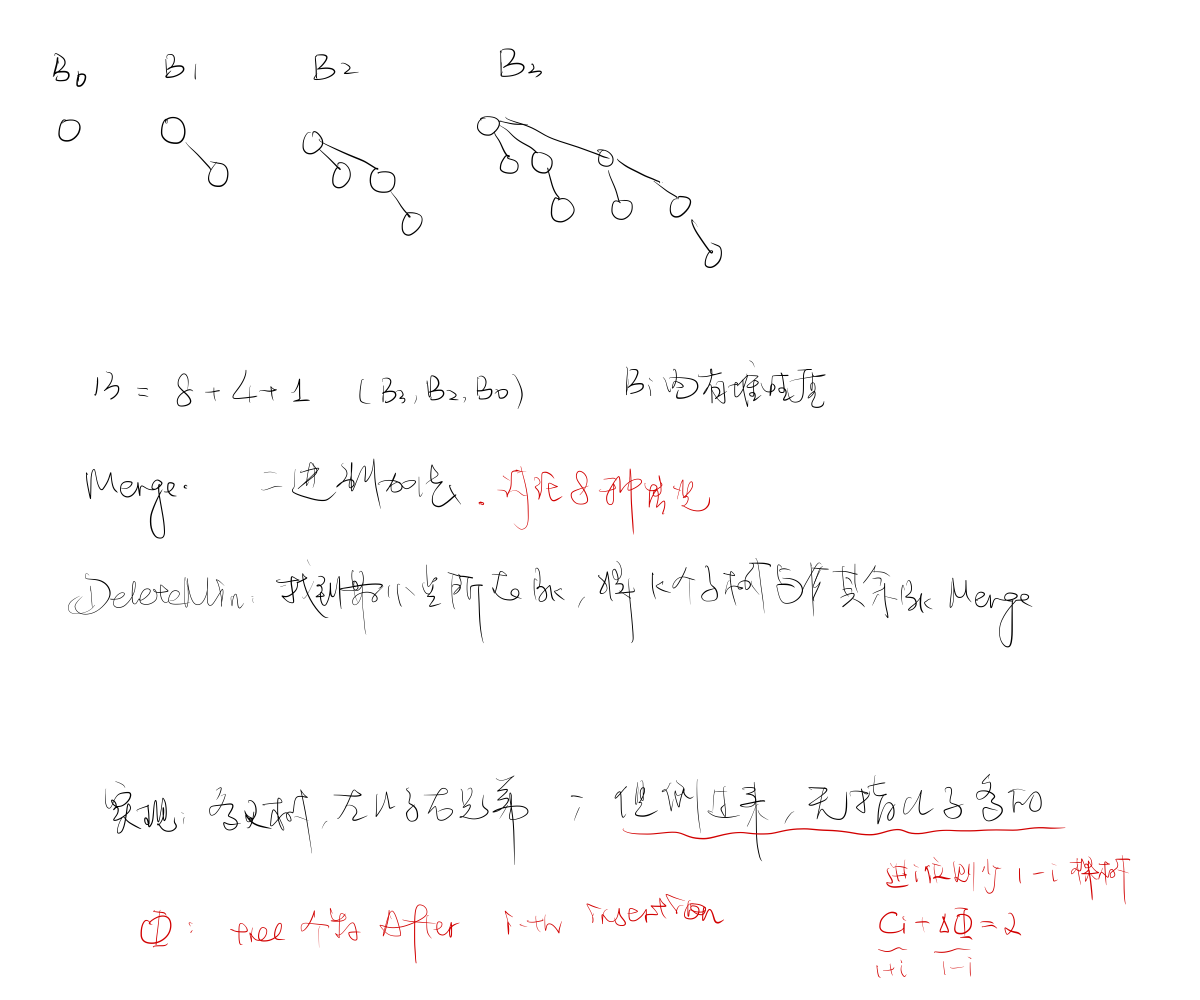 B0 B1 B2 B3
13 = 8+4+1 (B3, B2, B0) Bi内有堆性质
Merge. 二进制加法. 讨论8种情况
DeleteMin: 找到最小点所在Bk, 将k个子树与其余Bk Merge
实现: 多叉树, 左儿子右兄弟; 但倒过来, 先指儿子多的
进i位则少 1-i 棵树
Φ: tree 个数 After i-th insertion
Ci + ΔΦ = 2
1+i 1-i